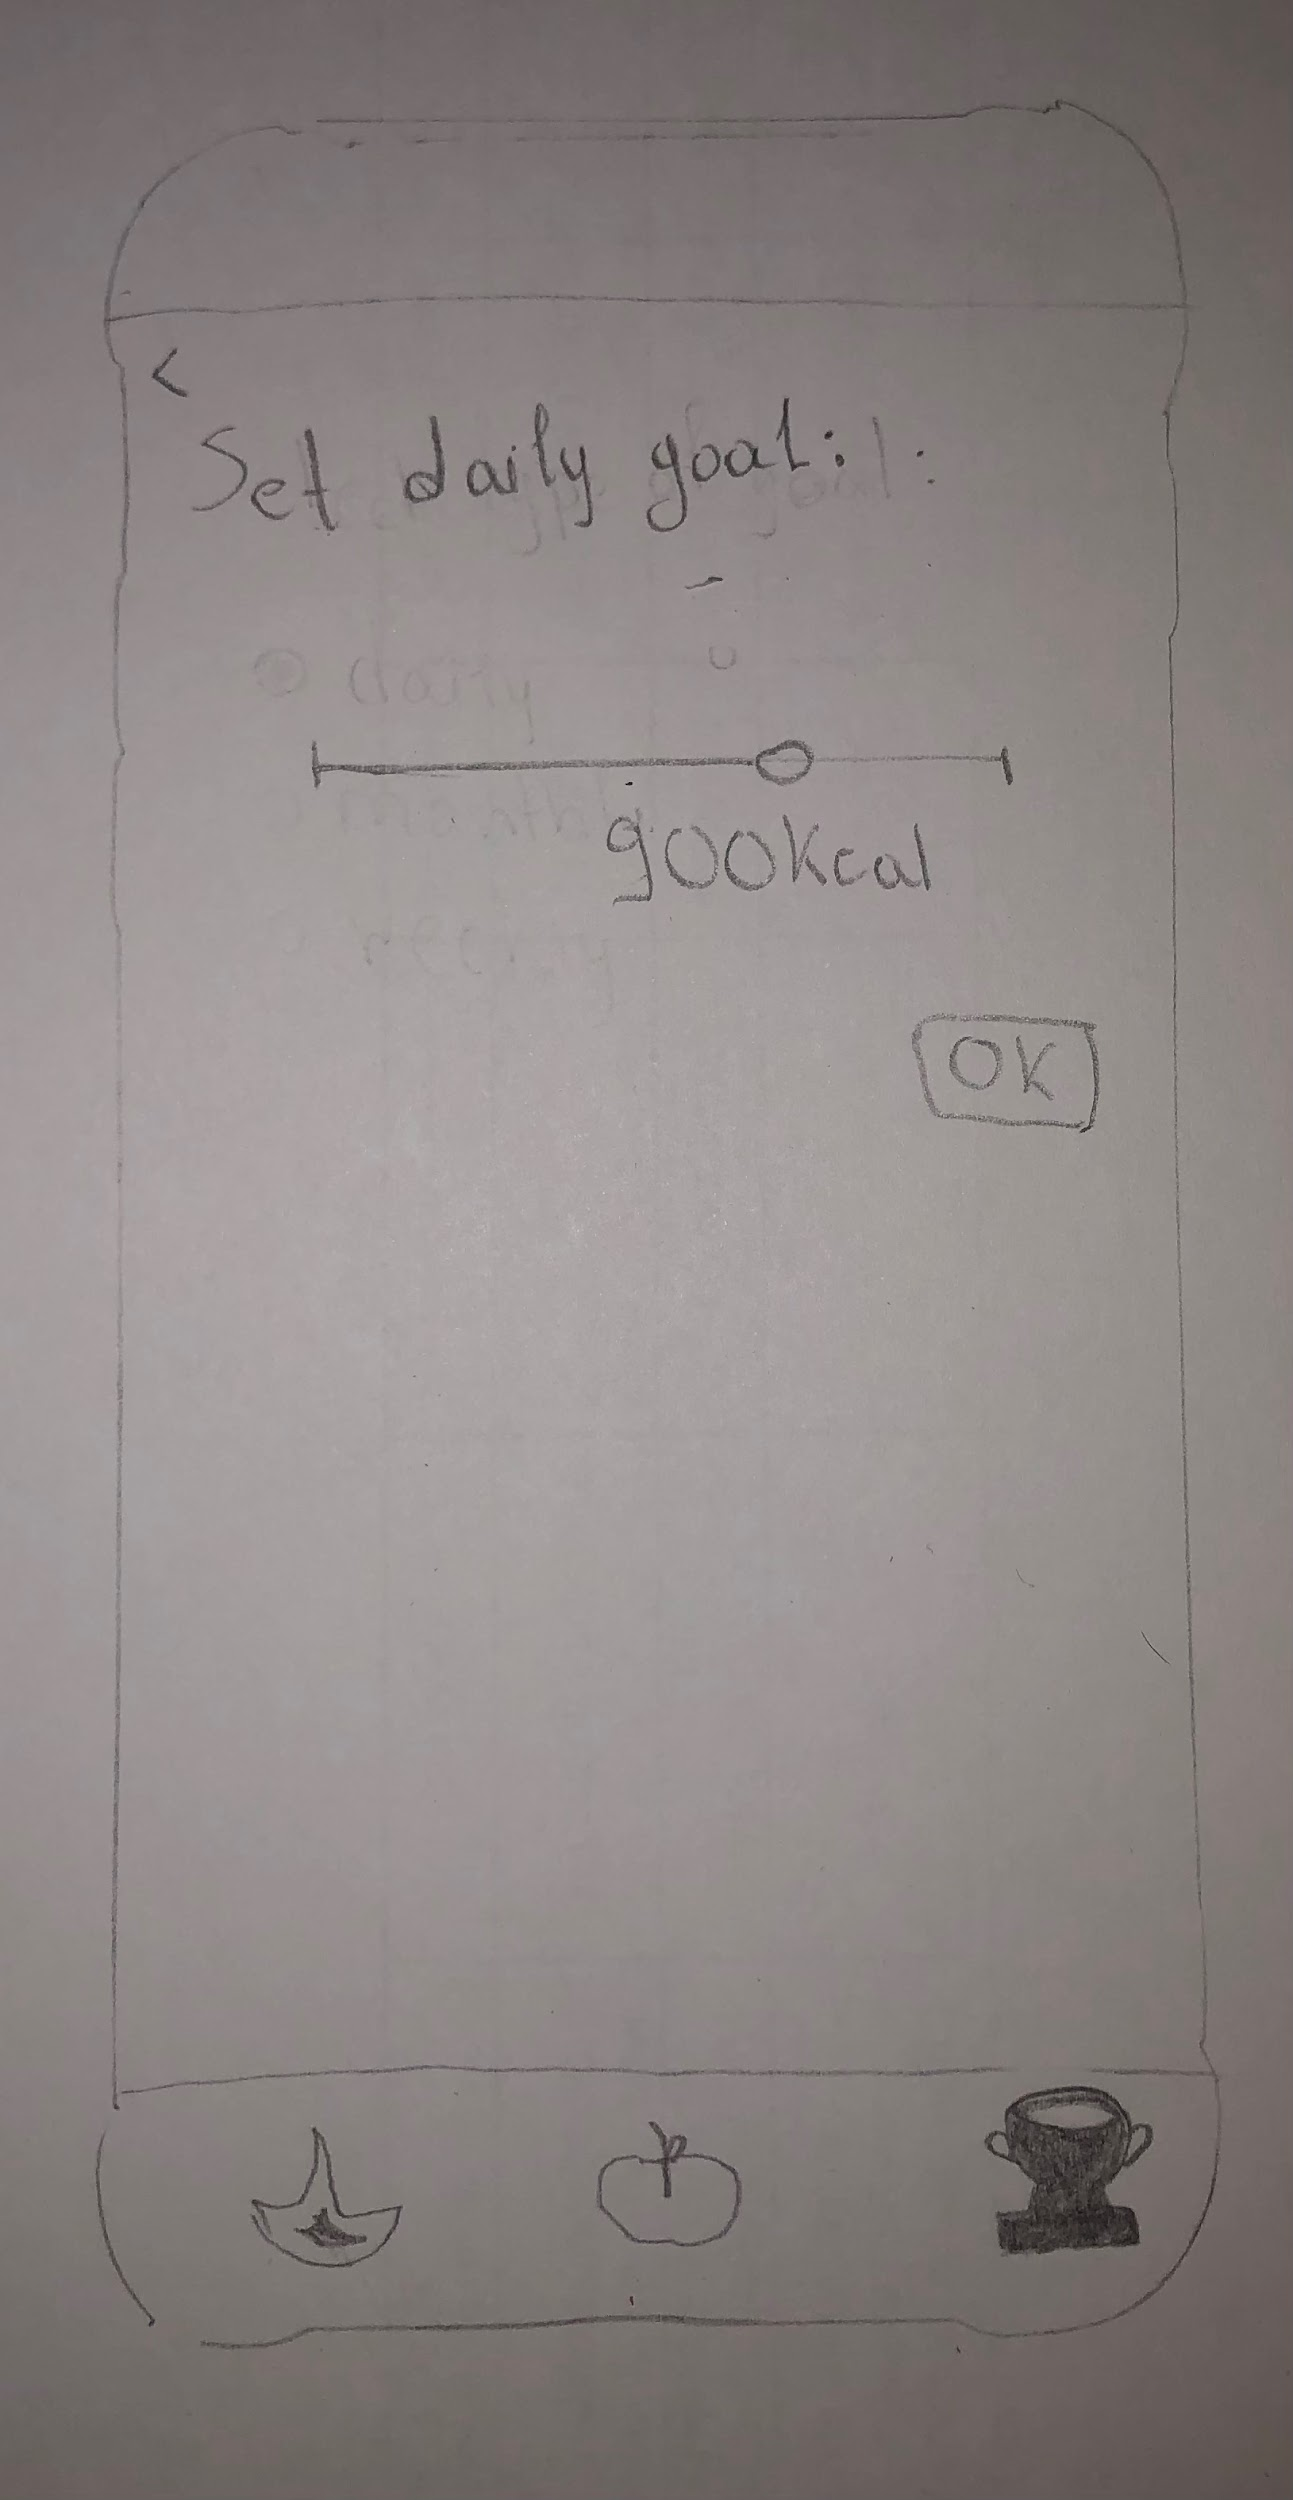 <
Set daily goal:
daily
900Kcal
OK